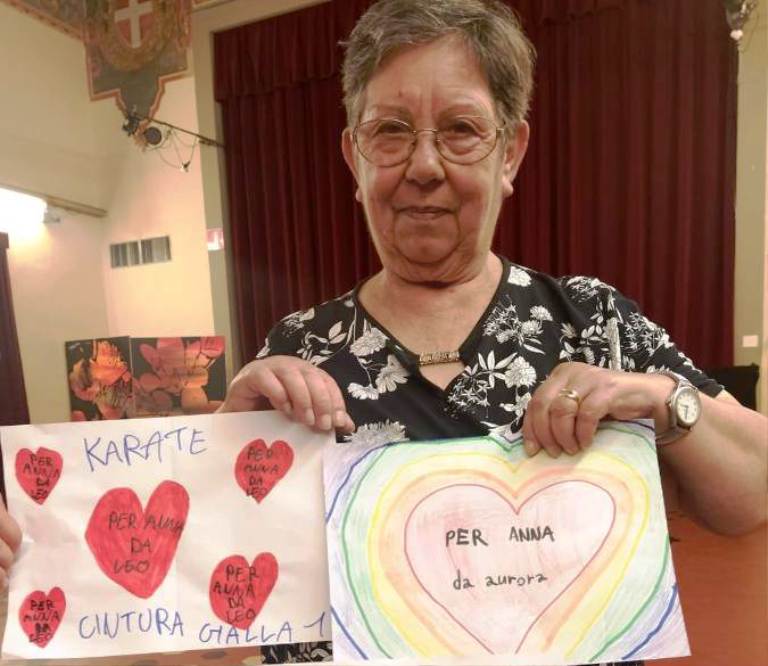 KARATE
PER
ANNA
DA
LEO
PER
ANNA
DA
LEO
PER ANNA
DA
LEO
PER
ANNA
DA
LEO
PER
ANNA
DA
LEO
CINTURA GIALLA 1
PER ANNA
da aurora